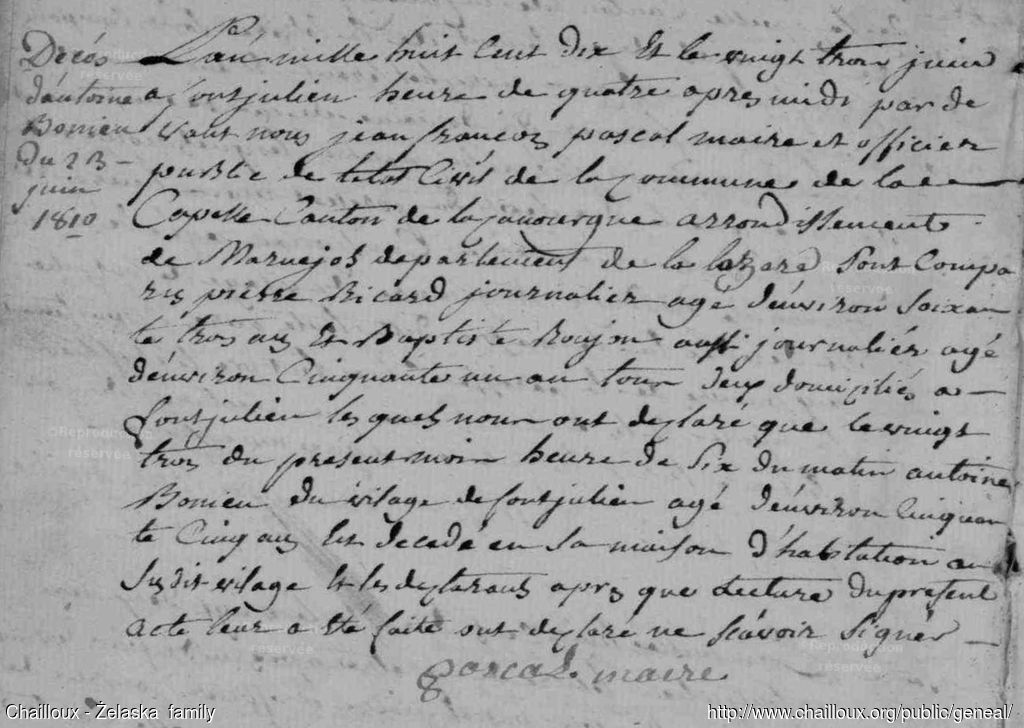 Décés
d'antoine
Bonieu
du 23
juin
1810
L'an mille huit Cent dix Et le vingt trois juin
a fontjulien heure de quatre apres midi par de
vant nous jean françois pascal maire et officier
public de letat Civil de la Commune de la
Capelle Canton de la Canourgue arrondissement
de Maruejols departement de la lozere Sont Compa
rus pierre Ricard journalier agé d'environ soixan
te trois ans Et Baptiste Roujon aussi journalier agé
d'environ Cinquante un an tous deux domiciliés a
fontjulien les quels nous ont declaré que le vingt
trois du present mois heure de Six du matin antoine
Bonieu du vilage de fontjulien agé d'environ Cinquan
te Cinq ans Est decedé en Sa maison d'habitation au
Susdit vilage Et les declarans apres que Lecture du present
acte leur a été faite ont declaré ne scavoir Signér
pascal maire
Reproduction
réservée
Reproduction
réservée
Chailloux - Żelaska family
http://www.chailloux.org/public/geneal/